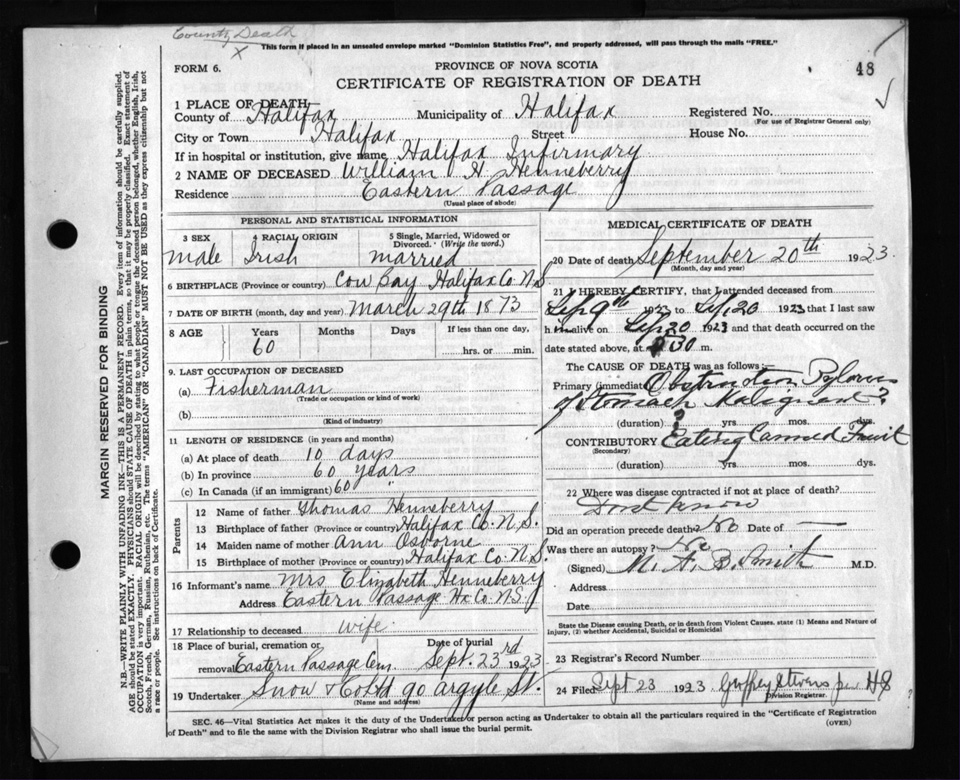 County Death
X
This form if placed in an unsealed envelope marked "Dominion Statistics Free", and properly addressed, will pass through the mails "FREE."
FORM 6.
PROVINCE OF NOVA SCOTIA
48
CERTIFICATE OF REGISTRATION OF DEATH
1 PLACE OF DEATH
County of Halifax Municipality of Halifax Registered No.
(For use of Registrar General only)
City or Town Halifax Street House No.
If in hospital or institution, give name Halifax Infirmary
2 NAME OF DECEASED William H Henneberry
Residence Eastern Passage
(Usual place of abode)
PERSONAL AND STATISTICAL INFORMATION
3 SEX 4 RACIAL ORIGIN 5 Single, Married, Widowed or Divorced. (Write the word.)
male Irish married
6 BIRTHPLACE (Province or country) Cow Bay Halifax Co N S
7 DATE OF BIRTH (month, day and year) March 29th 1873
8 AGE Years Months Days If less than one day,
60 hrs. or min.
9. LAST OCCUPATION OF DECEASED
(a) Fisherman
(Trade or occupation or kind of work)
(b)
(Kind of industry)
11 LENGTH OF RESIDENCE (in years and months)
(a) At place of death 10 days
(b) In province 60 years
(c) In Canada (if an immigrant) 60 "
Parents
12 Name of father Thomas Henneberry
13 Birthplace of father (Province or country) Halifax Co. N.S.
14 Maiden name of mother Ann Osborne
15 Birthplace of mother (Province or country) Halifax Co. N.S.
16 Informant's name Mrs Elizabeth Henneberry
Address Eastern Passage Hx Co. N.S.
17 Relationship to deceased wife
18 Place of burial, cremation or Date of burial
removal Eastern Passage Cem. Sept. 23rd 1923
19 Undertaker Snow & Co Ltd 90 Argyle St.
(Name and address)
MEDICAL CERTIFICATE OF DEATH
20 Date of death September 20th 1923
(Month, day and year)
21 I HEREBY CERTIFY, that I attended deceased from
Sep 9th 1923 to Sep 20 1923 that I last saw
h im alive on Sep 20 1923 and that death occurred on the
date stated above, at 30 m.
The CAUSE OF DEATH was as follows:
Primary (immediate) Obstruction Pylorus
of Stomach Malignant?
(duration) ? yrs mos. dys.
CONTRIBUTORY Eating Canned Fruit
(Secondary)
(duration) yrs. mos. dys.
22 Where was disease contracted if not at place of death?
Dont know
Did an operation precede death? No Date of —
Was there an autopsy? No
(Signed) M. A. B. Smith M.D.
Address
Date
State the Disease causing Death, or in death from Violent Causes. state (1) Means and Nature of
Injury, (2) whether Accidental, Suicidal or Homicidal
23 Registrar's Record Number
24 Filed Sept 23 1923 Stevens per HS
Division Registrar.
SEC. 46—Vital Statistics Act makes it the duty of the Undertaker or person acting as Undertaker to obtain all the particulars required in the "Certificate of Registration
of Death" and to file the same with the Division Registrar who shall issue the burial permit.
(OVER)
MARGIN RESERVED FOR BINDING
N.B.—WRITE PLAINLY WITH UNFADING INK—THIS IS A PERMANENT RECORD. Every item of information should be carefully supplied.
AGE should be stated EXACTLY. PHYSICIANS should STATE CAUSE OF DEATH in plain terms, so that it may be properly classified. Exact statement of
OCCUPATION is very important. RACIAL ORIGIN will be described by stating to what people or tongue the deceased person belonged, whether English, Irish,
Scotch, French, German, Russian, Ruthenian, etc. The terms "AMERICAN" OR "CANADIAN" MUST NOT BE USED as they express citizenship but not
a race or people. See instructions on back of Certificate.